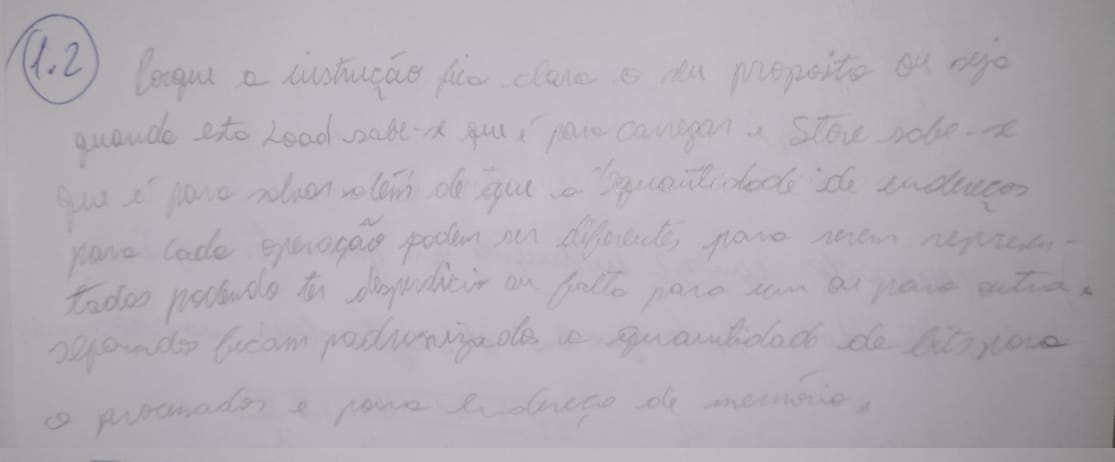 1.2 Porque a instrução fica claro o seu proposito ou seja
quando esta Load sabe-se que é para carregar e Store sabe-se
que é para salvar além de que a quantidade de endereços
para cada operação podem ser diferentes para serem represen-
tados podendo ter desperdicio ou falta para um ou para outra,
separados ficam padronizados a quantidade de bits para
o processador e para endereço de memória.